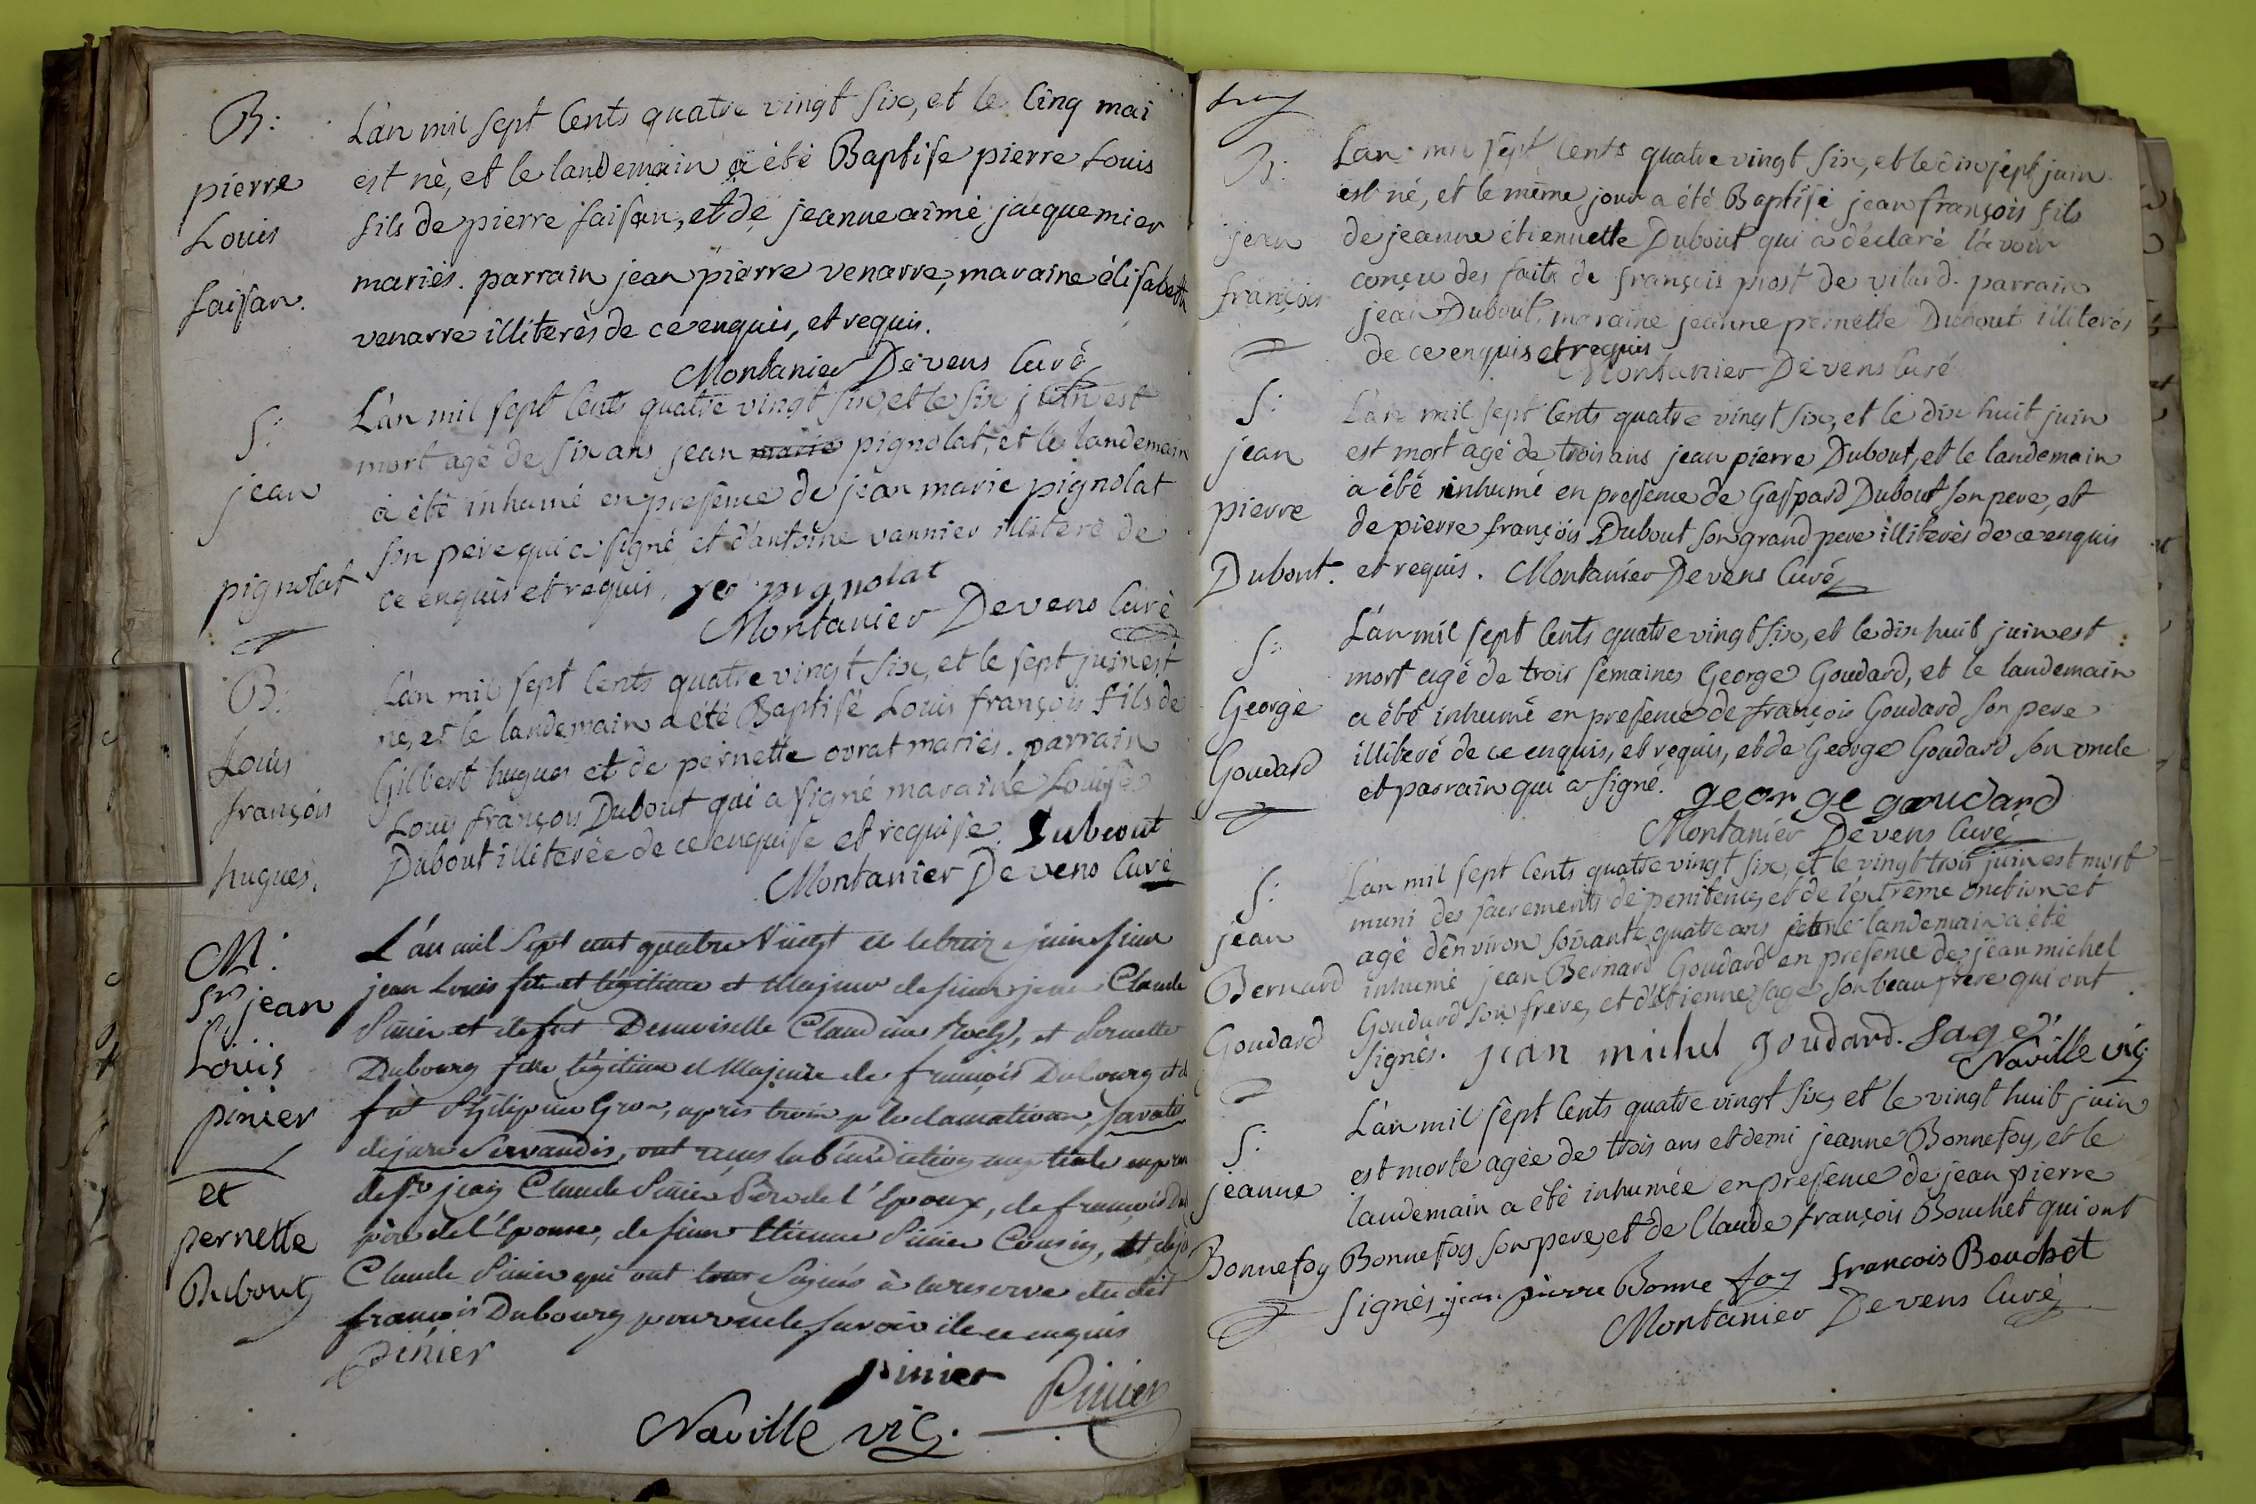 B:
pierre
Louis
faisan.
L'an mil sept Cents quatre vingt six, et le Cinq mai
est né, et le landemain a été Baptise pierre Louis
fils de pierre faisan, et de jeanne aimé jacquemier
mariés. parrain jean pierre venarre, maraine élisabeth
venarre illiterés de ce enquis, et requis.
Montanier Devens Curé
S:
jean
pignolat
L'an mil sept Cents quatre vingt six, et le six juin est
mort agé de six ans jean marie pignolat, et le landemain
a été inhumé en presence de jean marie pignolat
son pere qui a signé, et d'antoine vannier illiteré de
ce enquis et requis. pignolat
Montanier Devens Curé
B:
Louis
françois
hugues.
L'an mil sept Cents quatre vingt six, et le sept juin est
né, et le landemain a été Baptisé Louis françois fils de
Gilbert hugues et de pernette ovrat mariés. parrain
Louis françois Dubout qui a signé maraine Louise
Dubout illiterée de ce enquise et requise. Dubout
Montanier Devens Curé
M:
Sr jean
Louis
pinier
et
pernette
Dubourg
L'an mil Sept cent quatre Vingt et le treize juin sieur
jean Louis fils et légitime et Majeur de sieur jean Claude
Pinier et de fut Demoiselle Claudine Roch, et Pernette
Dubourg fille légitime et Majeure de françois Dubourg et de
fut Philipine Gros, après trois proclamations, servatis
de jure Servandis, ont reçus la bénédiction nuptiale en
de Sr jean Claude Pinier Père de l'Epoux, de françois
père de l'Epouse, de sieur Etienne Pinier Cousin, et de
Claude Pinier qui ont tous Signés à la reserve du dit
françois Dubourg pour ne le savoir de ce enquis
Pinier
pinier
Pinier
Naville vic.
B:
jean
françois
L'an mil sept Cents quatre vingt six, et le dix sept juin
est né, et le même jour a été Baptisé jean françois fils
de jeanne étiennette Dubout qui a déclaré l'avoir
conçu des faits de françois prost de vilard. parrain
jean Dubout, maraine jeanne pernette Dubout illiterés
de ce enquis et requis
Montanier Devens Curé
S:
jean
pierre
Dubout.
L'an mil sept Cents quatre vingt six, et le dix huit juin
est mort agé de trois ans jean pierre Dubout, et le landemain
a été inhumé en presence de Gaspard Dubout son pere, et
de pierre françois Dubout son grand pere illiterés de ce enquis
et requis. Montanier Devens Curé
S:
George
Goudard
L'an mil sept Cents quatre vingt six, et le dix huit juin est
mort agé de trois semaines George Goudard, et le landemain
a été inhumé en presence de françois Goudard son pere
illiteré de ce enquis, et requis, et de George Goudard son oncle
et parrain qui a signé. george goudard
Montanier Devens Curé
S:
jean
Bernard
Goudard
L'an mil sept Cents quatre vingt six, et le vingt trois juin est mort
muni des sacrements de penitence, et de l'extrême onction et
agé d'environ soixante quatre ans et le landemain a été
inhumé jean Bernard Goudard en presence de jean michel
Goudard son frere, et d'étienne sage son beau frere qui ont
signés. jean michel goudard. Sage
Naville vic
S:
jeanne
Bonnefoy
L'an mil sept Cents quatre vingt six, et le vingt huit juin
est morte agée de trois ans et demi jeanne Bonnefoy, et le
landemain a été inhumée en presence de jean pierre
Bonnefoy son pere, et de Claude françois Bouchet qui ont
signés. jean pierre Bonne foy francois Bouchet
Montanier Devens Curé